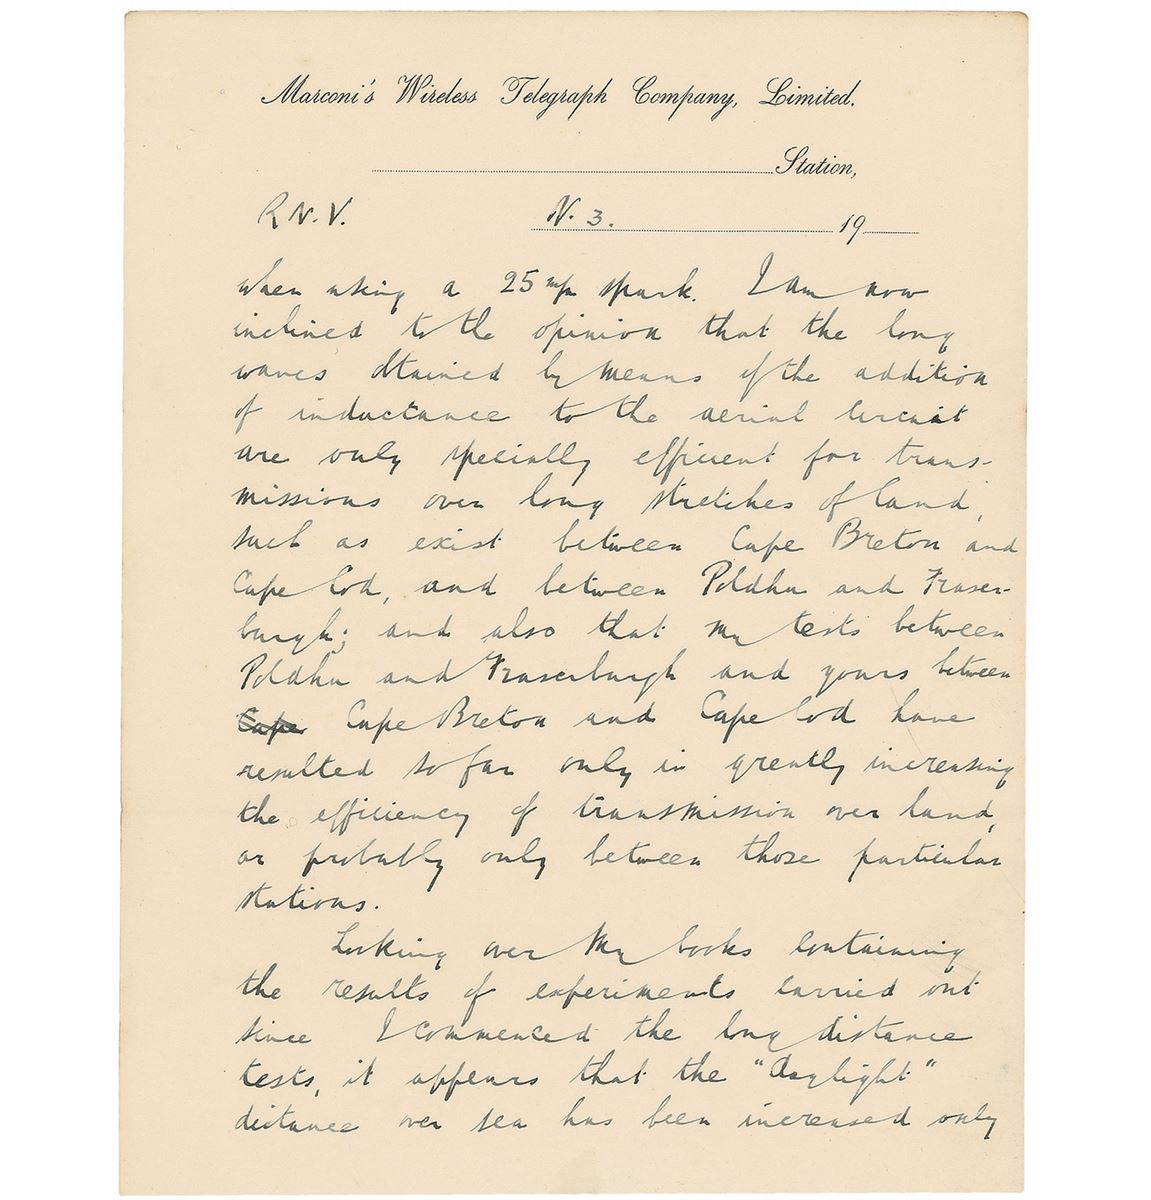 Marconi's Wireless Telegraph Company, Limited.
Station,
R N. V. N. 3. 19
when using a 25 m/m spark. I am now
inclined to the opinion that the long
waves obtained by means of the addition
of inductance to the aerial circuit
are only specially efficient for trans-
missions over long stretches of land,
such as exist between Cape Breton and
Cape Cod, and between Poldhu and Fraser-
burgh; and also that my tests between
Poldhu and Fraserburgh and yours between
Cape Cape Breton and Cape Cod have
resulted so far only in greatly increasing
the efficiency of transmission over land,
or probably only between those particular
stations.
Looking over my books containing
the results of experiments carried out
since I commenced the long distance
tests, it appears that the "daylight"
distance over sea has been increased only